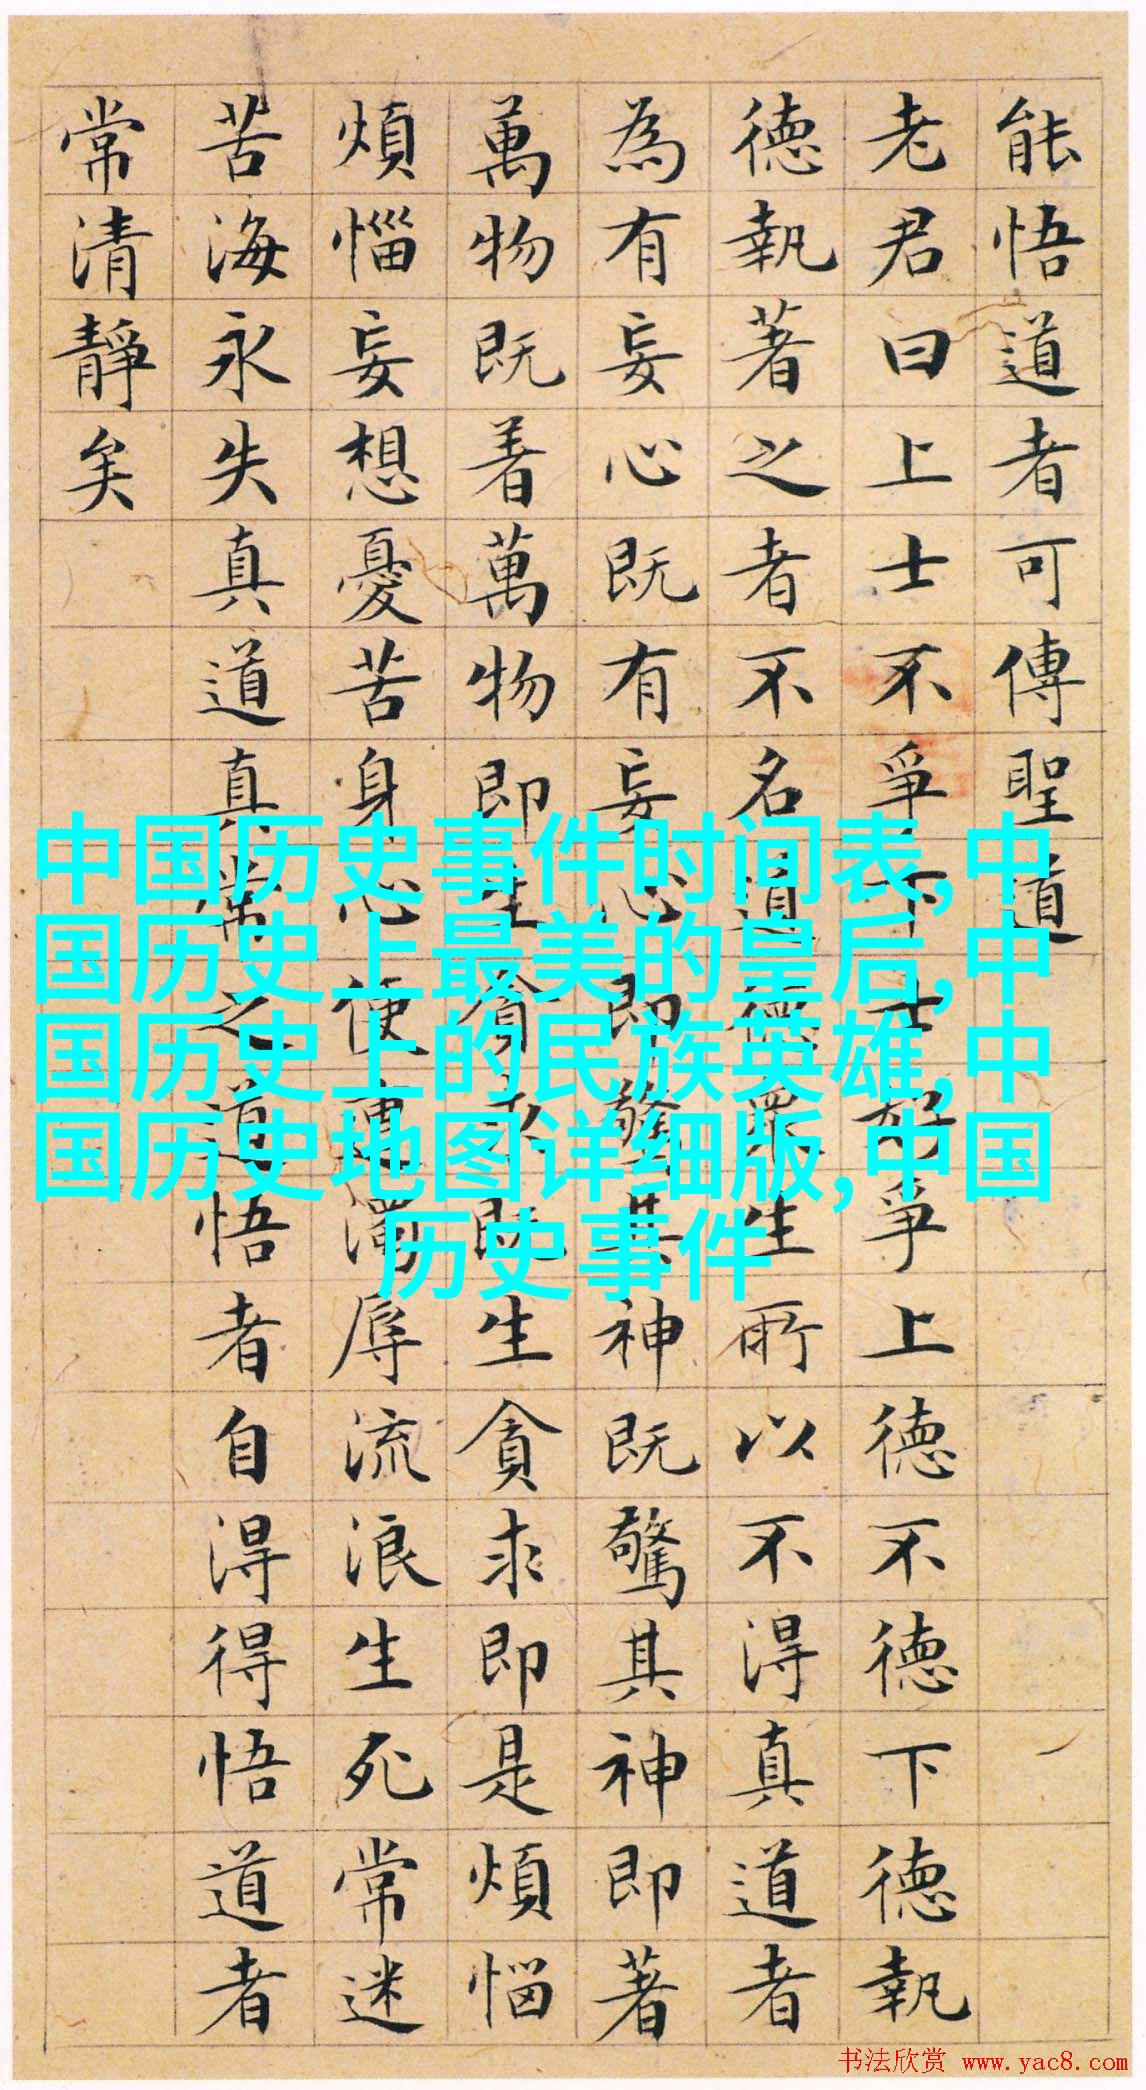 能悟道者可傳聖道
老君曰上士不爭下士好爭上德不德下德執
德執著之者不名道德眾生所以不得真道者
為有妄心既有妄心即驚其神既驚其神即著
萬物既着萬物即生貪求既生貪求即是煩惱
煩惱妄想憂苦身心便遭濁辱流浪生死常迷
苦海永失真道真常之道悟者自得得悟道者
常清靜矣
中国历史事件时间表,中
国历史上最美的皇后,中
国历史上的民族英雄,中
国历史地图详细版,中国
历史事件
书法欣赏 www.yac8.com